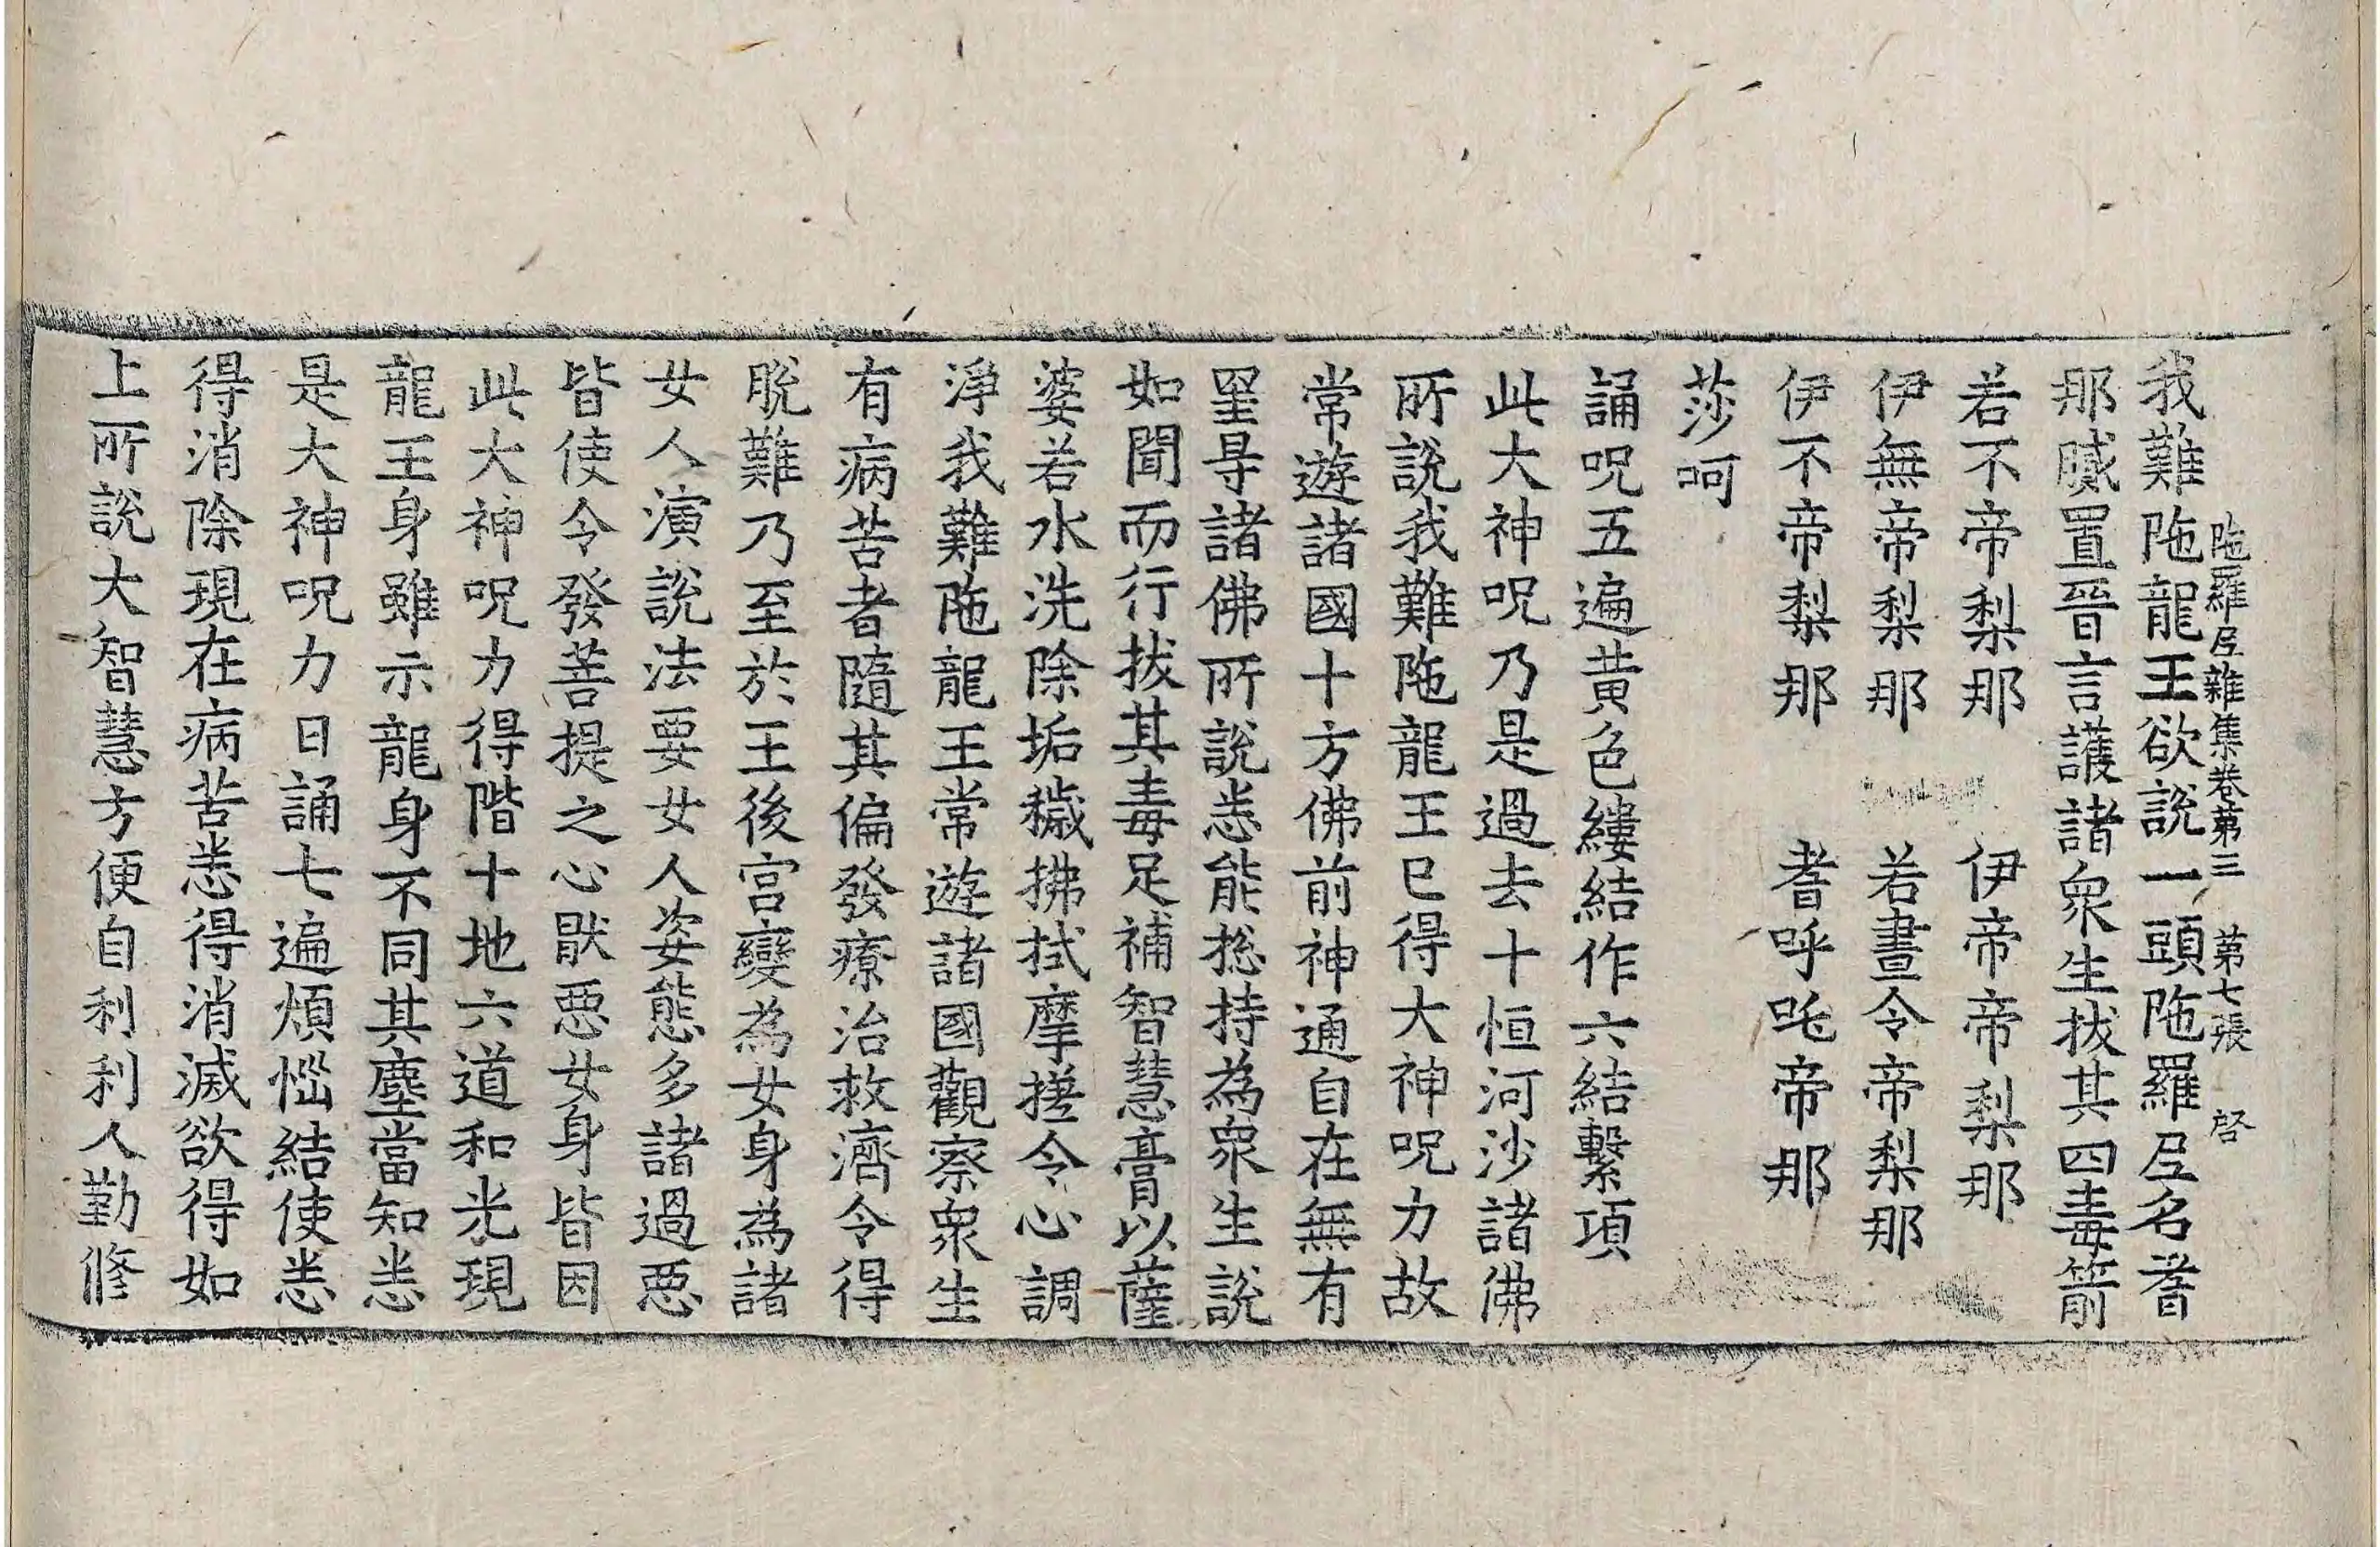 陁羅𡰱雜集卷第三　第七張　啓
我難陁龍王欲說一頭陁羅𡰱名耆
那膩置晉言護諸衆生拔其四毒箭
若不帝梨那　伊帝帝梨那
伊無帝梨那　若晝令帝梨那
伊不帝梨那　耆呼吒帝那
莎呵
誦呪五遍黃色縷結作六結繫項
此大神呪乃是過去十恒河沙諸佛
所說我難陁龍王已得大神呪力故
常遊諸國十方佛前神通自在無有
罣㝵諸佛所說悉能捴持為衆生說
如聞而行拔其毒足補智慧膏以薩
婆若水洗除垢穢拂拭摩搓令心調
淨我難陁龍王常遊諸國觀察衆生
有病苦者隨其偏發療治救濟令得
脫難乃至於王後宮變為女身為諸
女人演說法要女人姿態多諸過惡
皆使令發菩提之心猒惡女身皆因
此大神呪力得階十地六道和光現
龍王身雖示龍身不同其塵當知悉
是大神呪力日誦七遍煩惱結使悉
得消除現在病苦悉得消滅欲得如
上所說大智慧方便自利利人勤修